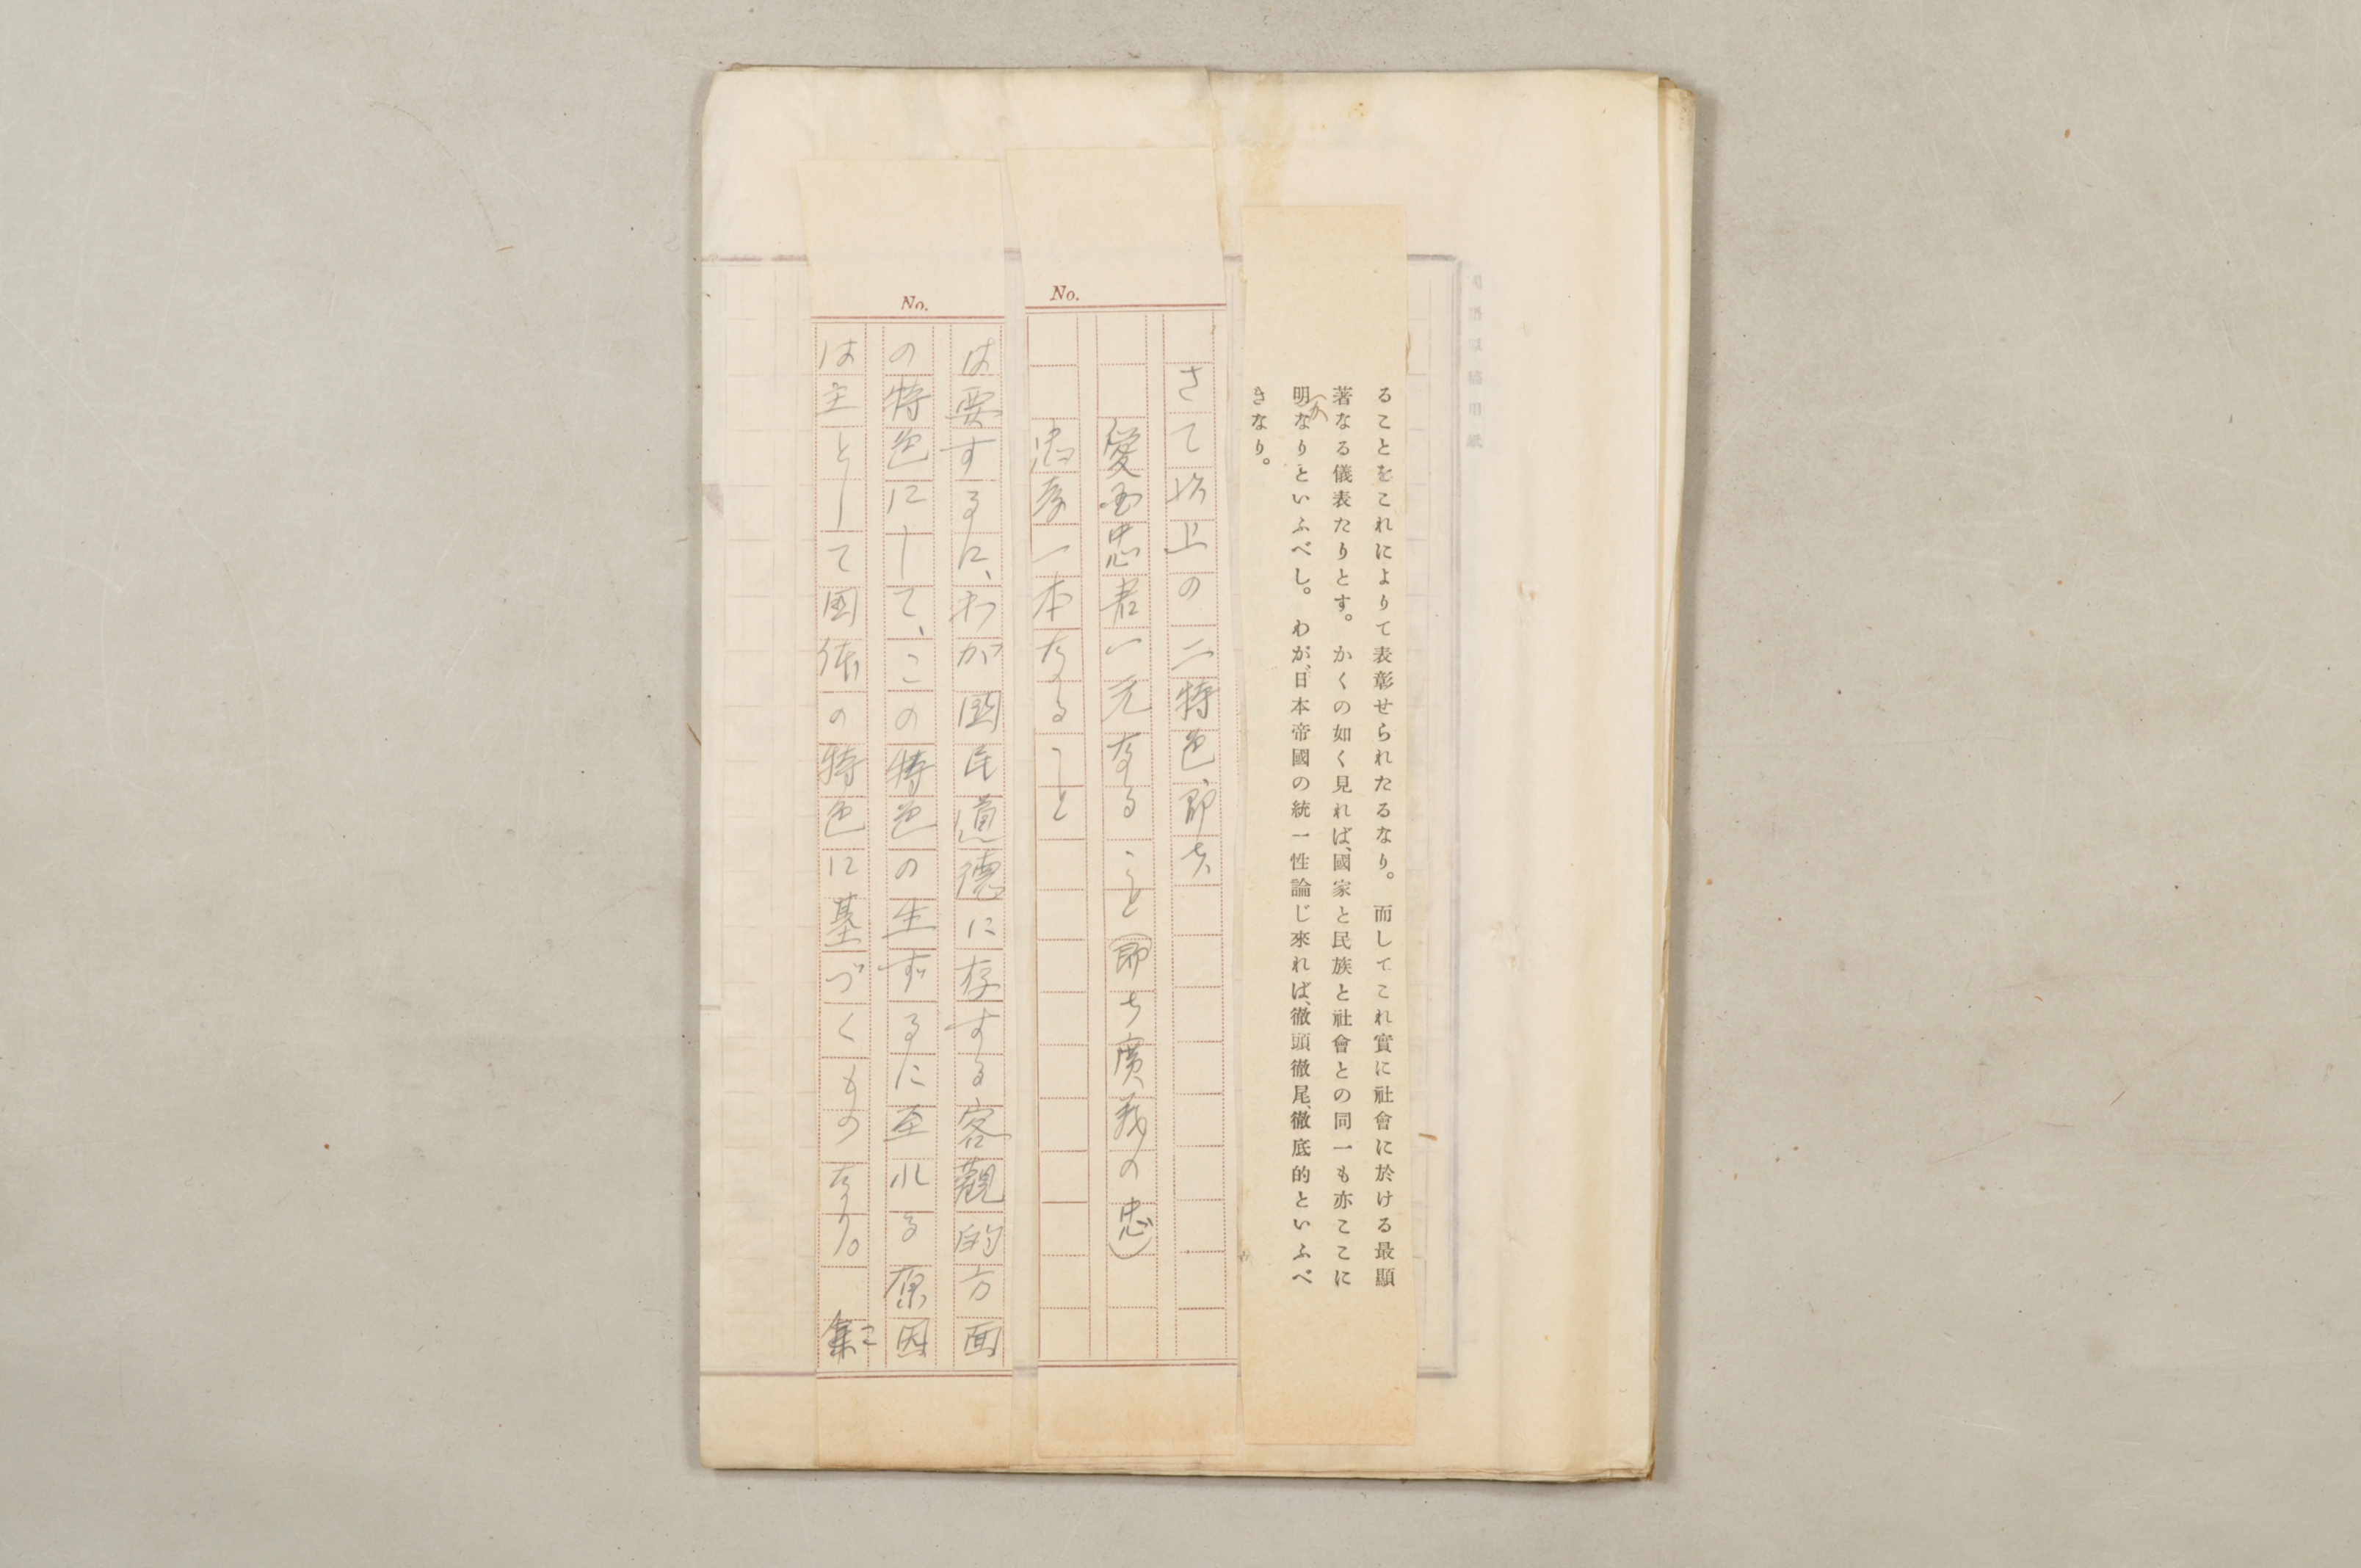 ることをこれによりて表彰せられたるなり。而してこれ實に社會に於ける最顯
著なる儀表たりとす。かくの如く見れば、國家と民族と社會との同一も亦ここに
明なりといふべし。わが、日本帝國の統一性論じ來れば、徹頭徹尾、徹底的といふべ
きなり。
No.
さて以上の二特色、即ち
愛国忠君一元なること(即ち廣義の忠)
忠孝一本なること
No.
は要するに、わが國民道德に存する客觀的方面
の特色にして、この特色の生ずるに至れる原因
は主として国体の特色に基づくものなり。